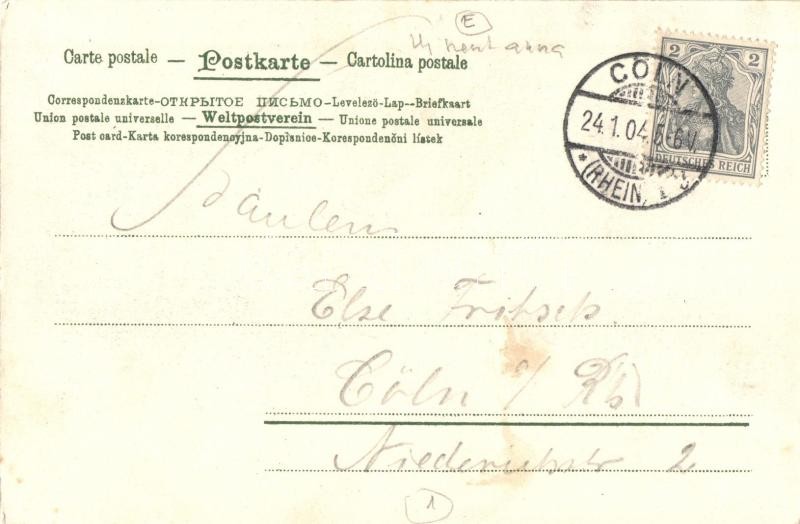 E
Carte postale — Postkarte — Cartolina postale
Correspondenzkarte-ОТКРЫТОЕ ПИСЬМО-Levelezö-Lap--Briefkaart
Union postale universelle — Weltpostverein — Unione postale universale
Post card-Karta korespondencyjna-Dopisnice-Korespondenční lístek
2 2
DEUTSCHES REICH
CÖLN
24.1.04. 5-6 V.
* (RHEIN) 1
Fräulein
Else Fritsch
Cöln a/Rh
2
1